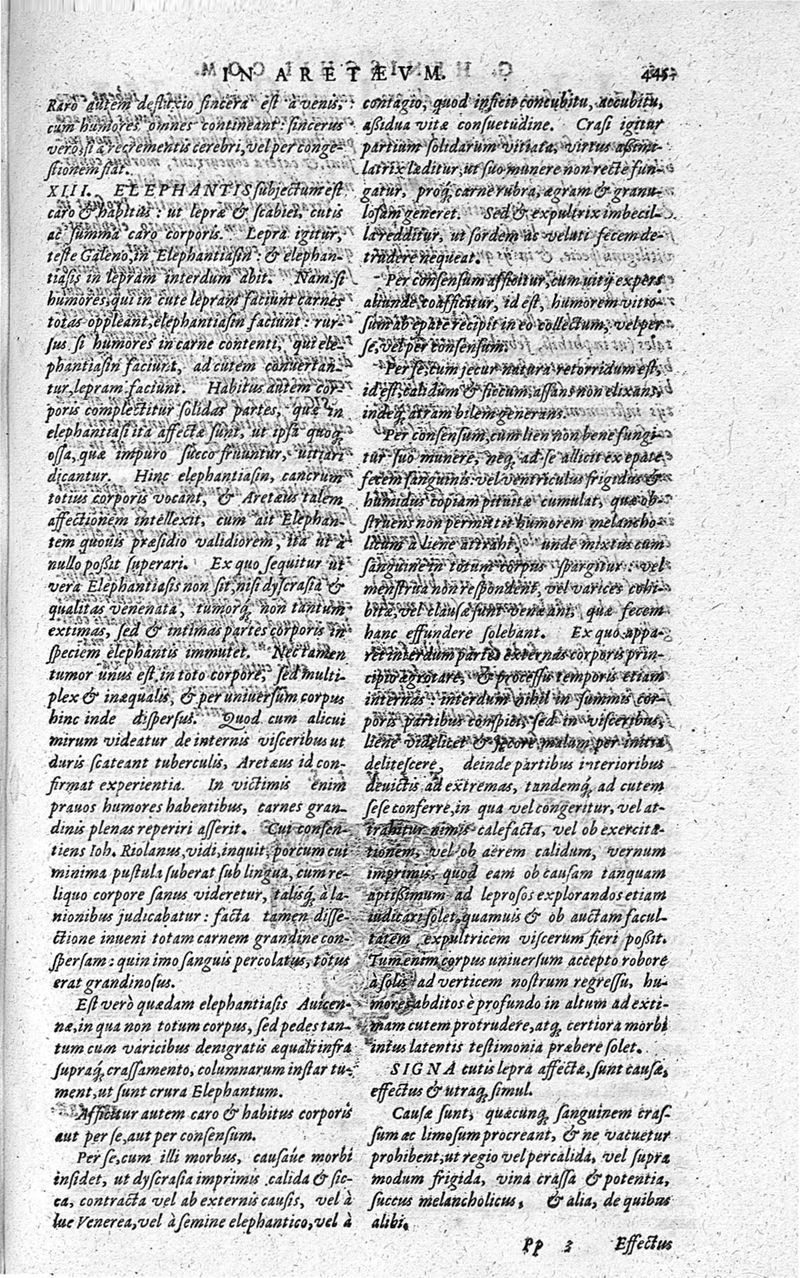 IN ARETÆVM. 445
Rarò autem destillatio sincera est à venis,
cum humores omnes contineant: sincerus
verò, si à recrementis cerebri, vel per conge-
stionem fiat.
XIII. ELEPHANTIS subjectum est
caro & habitus: ut lepræ & scabiei, cutis
ac summa caro corporis. Lepra igitur,
teste Galeno, in Elephantiasin: & elephan-
tiasis in lepram interdum abit. Nam si
humores, qui in cute lepram faciunt carnes
totas oppleant, elephantiasin faciunt: rur-
sus si humores in carne contenti, qui ele-
phantiasin faciunt, ad cutem convertan-
tur, lepram faciunt. Habitus autem cor-
poris complectitur solidas partes, quæ in
elephantiasi ita affectæ sunt, ut ipsa quoq;
ossa, quæ impuro succo fruuntur, vitiari
dicantur. Hinc elephantiasin, cancrum
totius corporis vocant, & Aretæus talem
affectionem intellexit, cum ait Elephan-
tem quouis præsidio validiorem, ita ut à
nullo poßit superari. Ex quo sequitur ut
vera Elephantiasis non sit, nisi dyscrasia &
qualitas venenata, tumorq; non tantum
extimas, sed & intimas partes corporis in
speciem elephantis immutet. Nec tamen
tumor unus est, in toto corpore, sed multi-
plex & inæqualis, & per universum corpus
hinc inde dispersus. Quod cum alicui
mirum videatur de internis visceribus ut
duris scateant tuberculis, Aretæus id con-
firmat experientia. In victimis enim
prauos humores habentibus, carnes gran-
dinis plenas reperiri asserit. Cui consen-
tiens Ioh. Riolanus, vidi, inquit, porcum cui
minima pustula suberat sub lingua, cum re-
liquo corpore sanus videretur, talisq; à la-
nionibus judicabatur: facta tamen disse-
ctione inveni totam carnem grandine con-
spersam: quin imo sanguis percolatus, totus
erat grandinosus.
Est verò quædam elephantiasis Auicen-
næ, in qua non totum corpus, sed pedes tan-
tum cum varicibus denigratis æquali infra
supraq; crassamento, columnarum instar tu-
ment, ut sunt crura Elephantum.
Afficitur autem caro & habitus corporis
aut per se, aut per consensum.
Per se, cum illi morbus, causaue morbi
insidet, ut dyscrasia imprimis calida & sic-
ca, contracta vel ab externis causis, vel à
lue Venerea, vel à semine elephantico, vel à
contagio, quod inficit concubitu, accubitu,
aßidua vitæ consuetudine. Crasi igitur
partium solidarum vitiata, virtus aßimi-
latrix læditur, ut suo munere non recte fun-
gatur, proq; carne rubra, ægram & granu-
losam generet. Sed & expultrix imbecil-
la redditur, ut sordem ac veluti fecem de-
trudere nequeat.
Per consensum afficitur, cum vitij expers
aliunde coafficitur, id est, humorem vitio-
sum ab epate recipit in eo collectum, vel per
se, vel per consensum.
Per se, cum jecur natura retorridum est,
id est, calidum & siccum, assans non elixans,
indeq; atram bilem generans.
Per consensum, cum lien non bene fungi-
tur suo munere, neq; ad se allicit ex epate
fecem sanguinis: vel ventriculus frigidus &
humidus copiam pituitæ cumulat, quæ ob-
struens non permittit humorem melancho-
licum à liene attrahi, unde mixtus cum
sanguine in totum corpus spargitur: vel
menstrua non respondent, vel varices cohi-
bitæ, vel clausæ sunt venæ ani, quæ fecem
hanc effundere solebant. Ex quo appa-
ret interdum partes externas corporis prin-
cipio ægrotare, & processu temporis etiam
internas: interdum nihil in summis cor-
poris partibus conspici, sed in visceribus,
liene videlicet & jecore malum per initia
delitescere, deinde partibus interioribus
devictis ad extremas, tandemq; ad cutem
sese conferre, in qua vel congeritur, vel at-
trahitur nimis calefacta, vel ob exercita-
tionem, vel ob aërem calidum, vernum
imprimis, quod eam ob causam tanquam
aptißimum ad leprosos explorandos etiam
iudicari solet, quamuis & ob auctam facul-
tatem expultricem viscerum fieri poßit.
Tum enim corpus universum accepto robore
à solis ad verticem nostrum regressu, hu-
mores abditos è profundo in altum ad exti-
mam cutem protrudere, atq; certiora morbi
intus latentis testimonia præbere solet.
SIGNA cutis lepra affectæ, sunt causæ,
effectus & utraq; simul.
Causæ sunt, quæcunq; sanguinem cras-
sum ac limosum procreant, & ne vacuetur
prohibent, ut regio vel percalida, vel supra
modum frigida, vina crassa & potentia,
succus melancholicus, & alia, de quibus
alibi.
Pp 3 Effectus